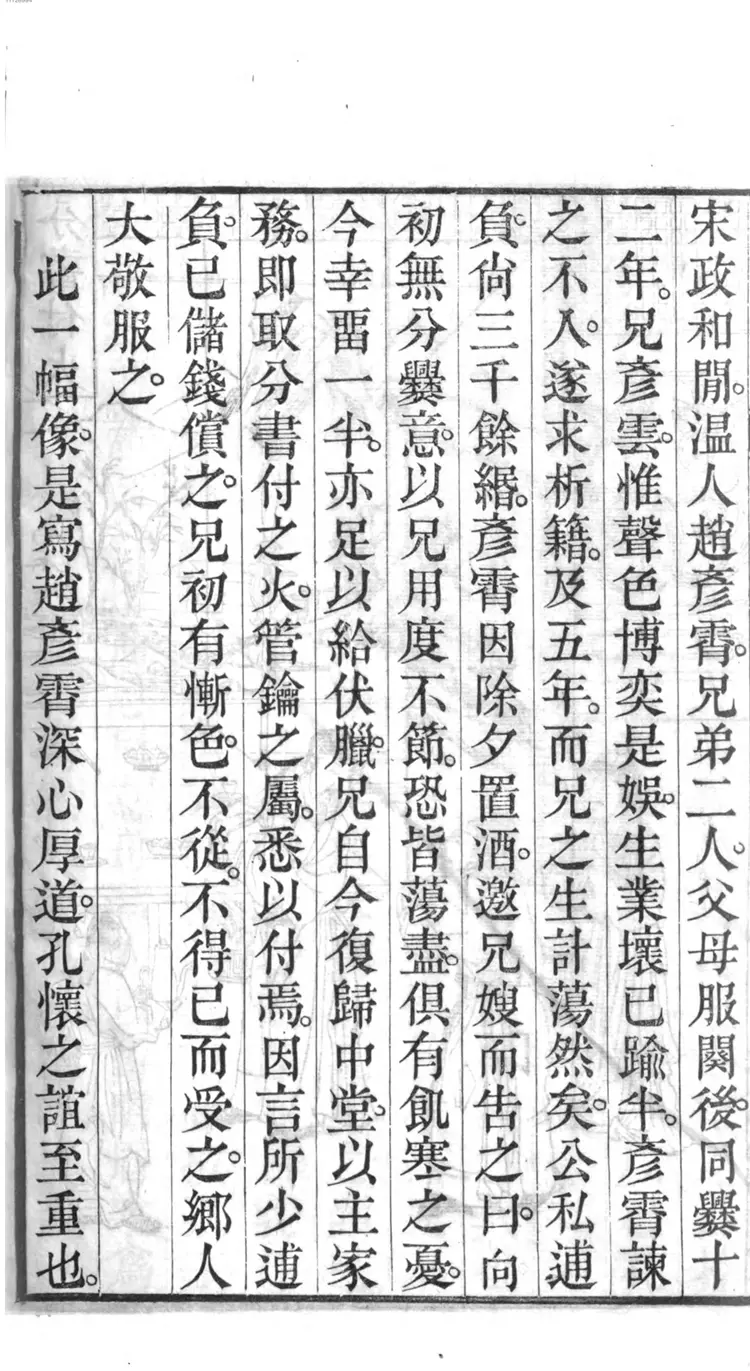 宋政和閒。温人趙彥霄。兄弟二人。父母服闋後。同爨十
二年。兄彥雲。惟聲色博奕是娛。生業壞已踰半。彥霄諫
之不入。遂求析籍。及五年。而兄之生計蕩然矣。公私逋
負。尙三千餘緡。彥霄因除夕置酒。邀兄嫂而告之曰。向
初無分爨意。以兄用度不節。恐皆蕩盡。俱有飢寒之憂。
今幸畱一半。亦足以給伏臘。兄自今復歸中堂。以主家
務。即取分書付之火。管鑰之屬。悉以付焉。因言所少逋
負。已儲錢償之。兄初有慚色。不從。不得已而受之。鄉人
大敬服之。
此一幅像。是寫趙彥霄深心厚道。孔懷之誼至重也。